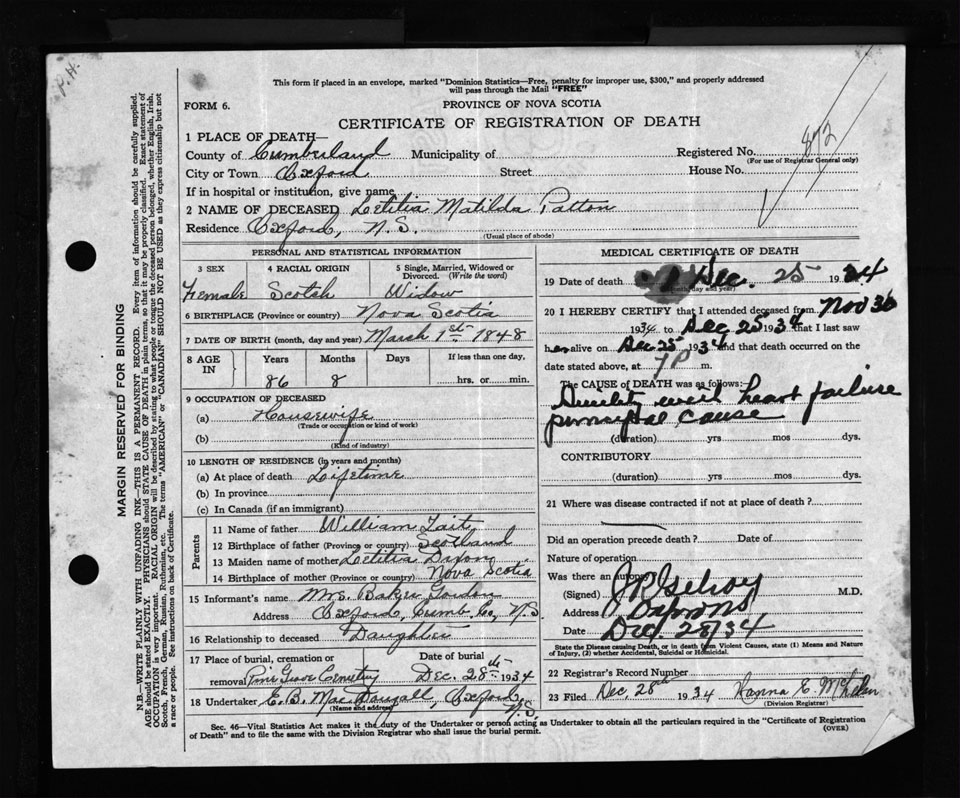 P. H.
This form if placed in an envelope, marked "Dominion Statistics—Free, penalty for improper use, $300," and properly addressed
will pass through the Mail "FREE"
FORM 6.
PROVINCE OF NOVA SCOTIA
CERTIFICATE OF REGISTRATION OF DEATH
872
1 PLACE OF DEATH—
County of Cumberland Municipality of Registered No.
(For use of Registrar General only)
City or Town Oxford Street House No.
If in hospital or institution, give name
2 NAME OF DECEASED Letitia Matilda Patton
Residence Oxford, N. S.
(Usual place of abode)
PERSONAL AND STATISTICAL INFORMATION
3 SEX 4 RACIAL ORIGIN 5 Single, Married, Widowed or
Divorced. (Write the word)
Female Scotsh Widow
6 BIRTHPLACE (Province or country) Nova Scotia
7 DATE OF BIRTH (month, day and year) March 1st 1848
8 AGE IN Years Months Days If less than one day,
86 8 hrs. or min.
9 OCCUPATION OF DECEASED
(a) Housewife
(Trade or occupation or kind of work)
(b)
(Kind of industry)
10 LENGTH OF RESIDENCE (in years and months)
(a) At place of death Lifetime
(b) In province
(c) In Canada (if an immigrant)
Parents
11 Name of father William Tait
12 Birthplace of father (Province or country) Scotland
13 Maiden name of mother Letitia Dixon
14 Birthplace of mother (Province or country) Nova Scotia
15 Informant's name Mrs. Baker Gordon
Address Oxford, Cumb. Co, N.S.
16 Relationship to deceased Daughter
17 Place of burial, cremation or Date of burial
removal Pine Grove Cemetery Dec. 28th 1934
18 Undertaker E. B. MacDougall, Oxford, N.S.
(Name and address)
MEDICAL CERTIFICATE OF DEATH
19 Date of death Dec. 25 1934
(month, day and year)
20 I HEREBY CERTIFY that I attended deceased from Nov 30
1934 to Dec 25 1934 that I last saw
her alive on Dec 25 1934 and that death occurred on the
date stated above, at 7 P m.
The CAUSE of DEATH was as follows:
with heart failure
principal cause
(duration) yrs mos dys.
CONTRIBUTORY
(duration) yrs mos dys.
21 Where was disease contracted if not at place of death?
Did an operation precede death? Date of
Nature of operation
Was there an autopsy
(Signed) M.D.
Address
Date Dec. 28/34
State the Disease causing Death, or in death from Violent Causes, state (1) Means and Nature
of Injury, (2) whether Accidental, Suicidal or Homicidal.
22 Registrar's Record Number
23 Filed Dec, 28th 1934 Hanna E.
(Division Registrar)
Sec. 46—Vital Statistics Act makes it the duty of the Undertaker or person acting as Undertaker to obtain all the particulars required in the "Certificate of Registration
of Death" and to file the same with the Division Registrar who shall issue the burial permit.
(OVER)
MARGIN RESERVED FOR BINDING
N.B.—WRITE PLAINLY WITH UNFADING INK—THIS IS A PERMANENT RECORD. Every item of information should be carefully supplied.
AGE should be stated EXACTLY. PHYSICIANS should STATE CAUSE OF DEATH in plain terms, so that it may be properly classified. Exact statement of
OCCUPATION is very important. RACIAL ORIGIN will be described by stating to what people or tongue the deceased person belonged, whether English, Irish,
Scotch, French, German, Russian, Ruthenian, etc. The terms "AMERICAN" or "CANADIAN" SHOULD NOT BE USED as they express citizenship but not
a race or people. See instructions on back of Certificate.